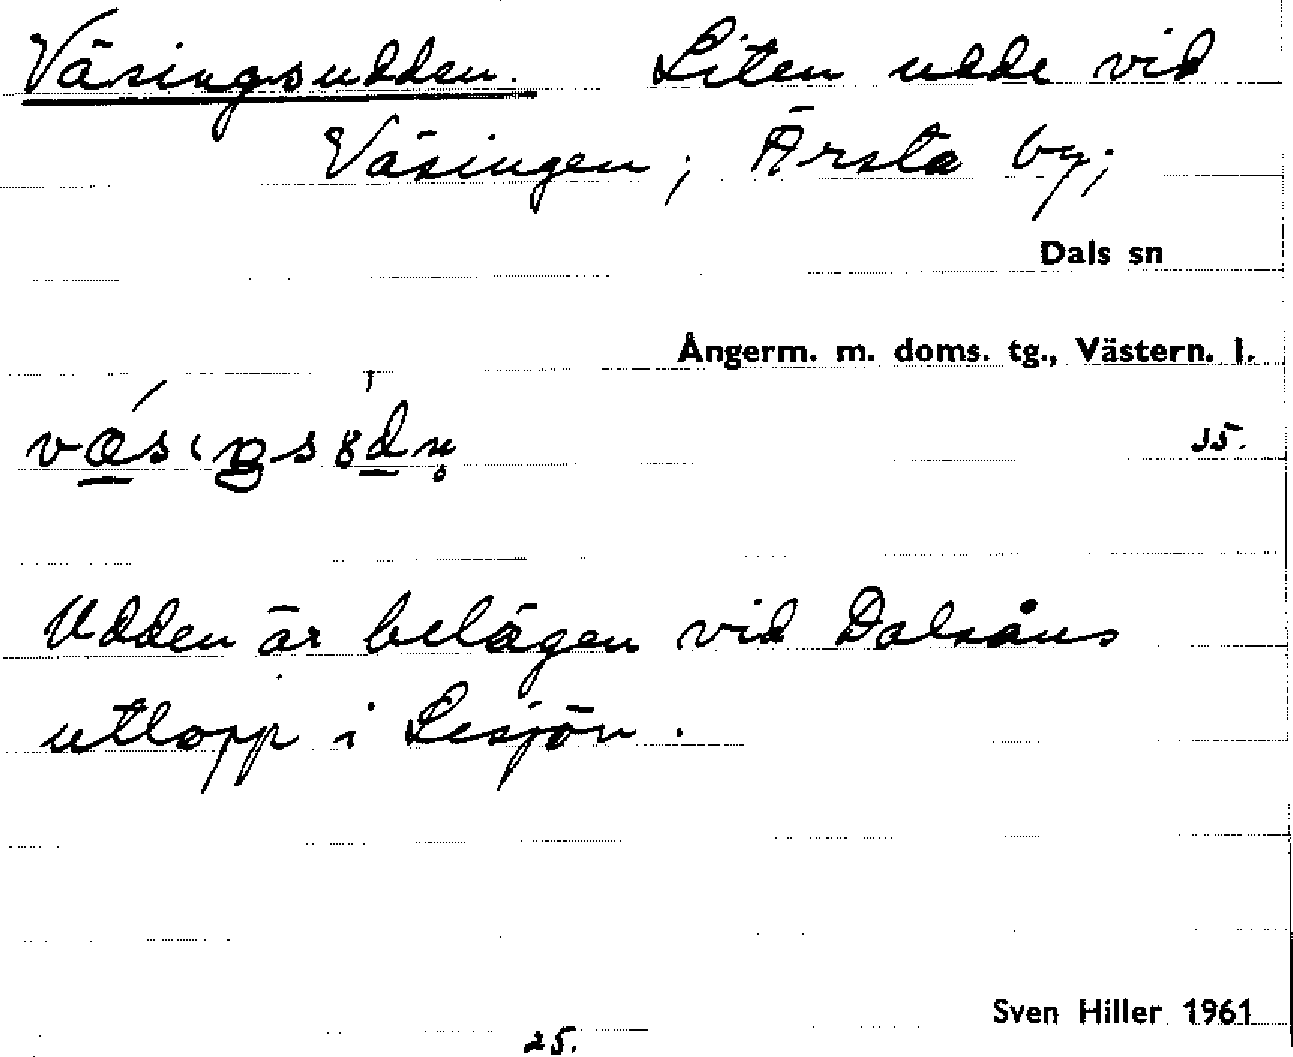 Väsingsudden. Liten udde vid
Väsingen; Ärsta by;
Dals sn
Ångerm. m. doms. tg., Västern. l.
15.
Udden är belägen vid Dalsåns
utlopp i Lesjön.
Sven Hiller 1961
25.